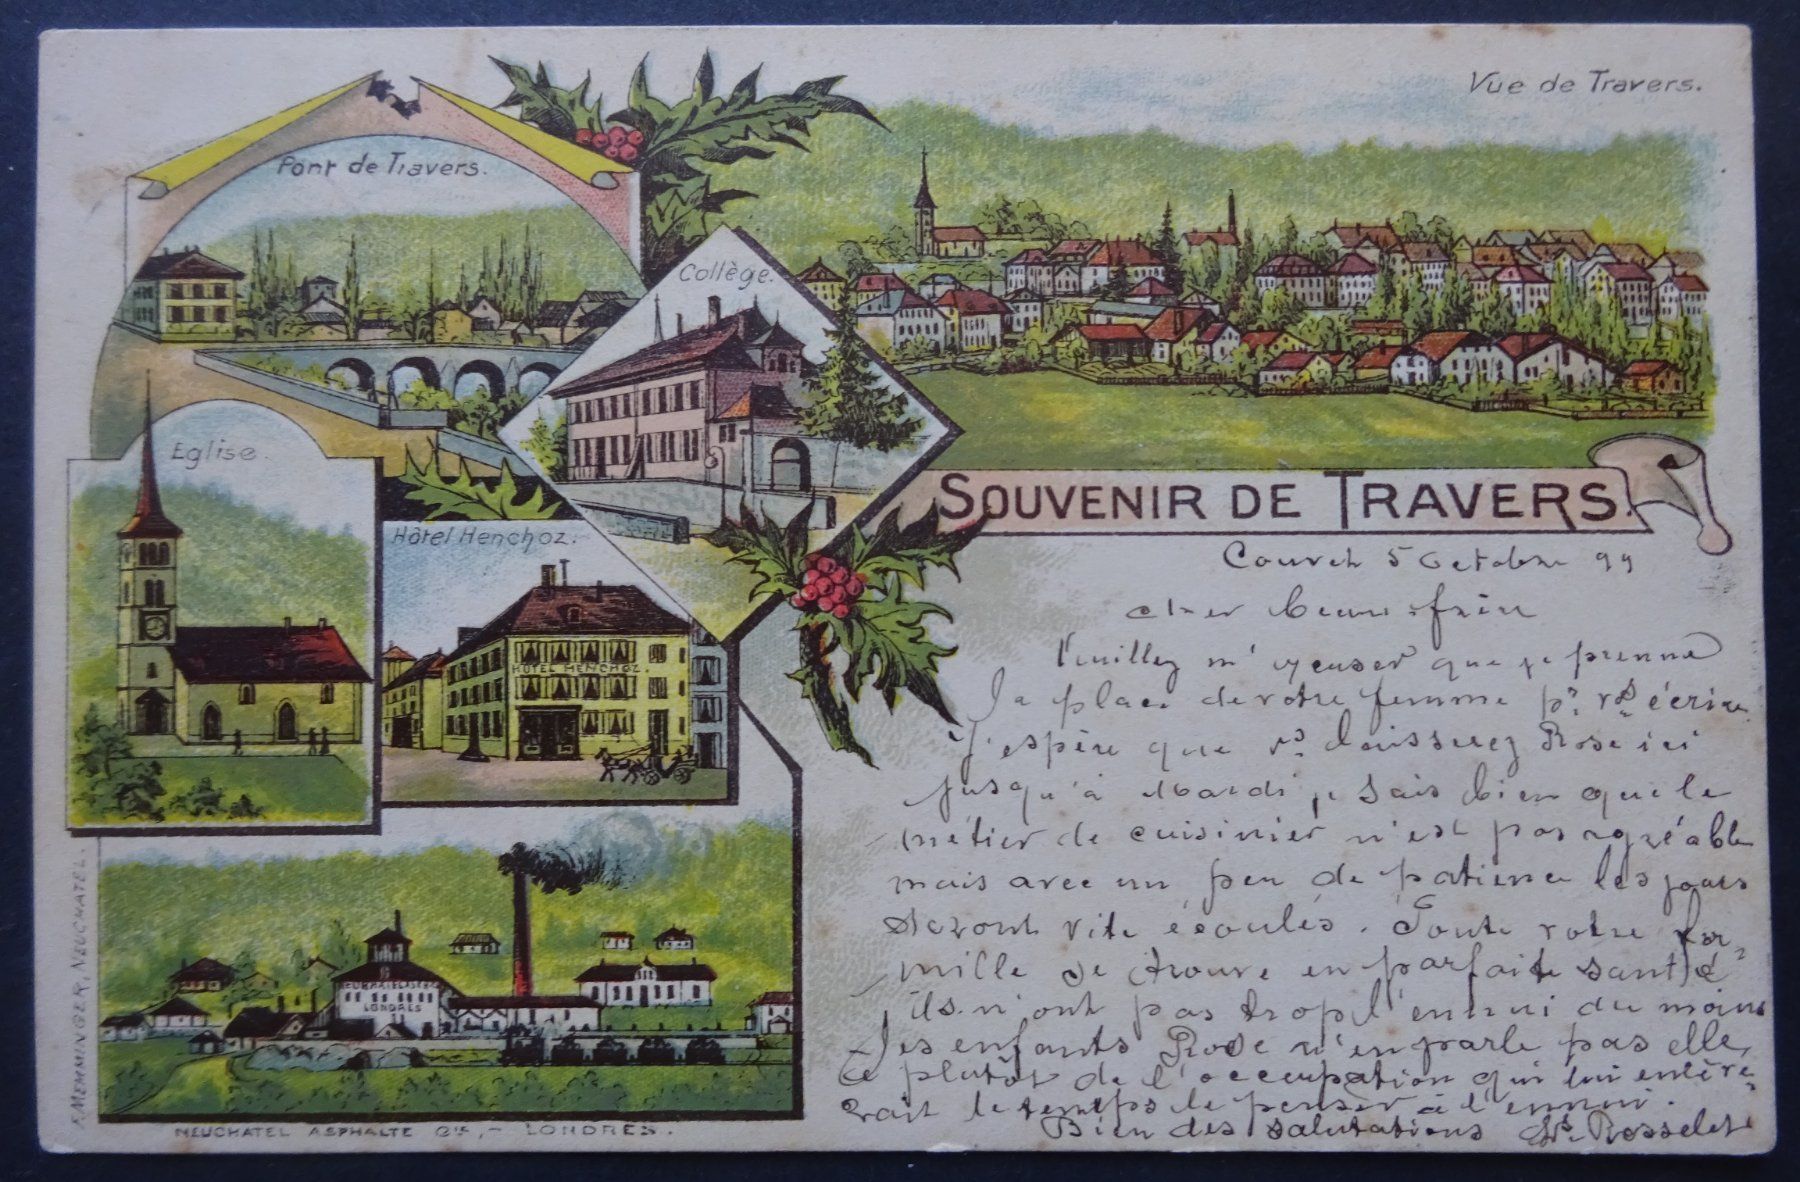 Vue de Travers.
Pont de Travers.
Collège.
Eglise.
Hôtel Henchoz.
HÔTEL HENCHOZ.
SOUVENIR DE TRAVERS.
LONDRES
NEUCHATEL ASPHALTE Cie, - LONDRES.
F. MEMMINGER, NEUCHATEL.
Couvet 5 Octobre 99
cher beau-frère
Veuillez m'excuser que je prenne
la place de votre femme pr vs écrire
J'espère que vs laisserez Rose ici
jusqu'à Mardi, je sais bien que le
métier de cuisinier n'est pas agréable
mais avec un peu de patience les jours
seront vite écoulés. Toute votre fa-
mille se trouve en parfaite santé
ils n'ont pas trop l'ennui du moins
les enfants Rose n'en parle pas elle,
a plutôt de l'occupation qui lui enlève-
rait le temps de penser à l'ennui.
Bien des salutations Rosselet